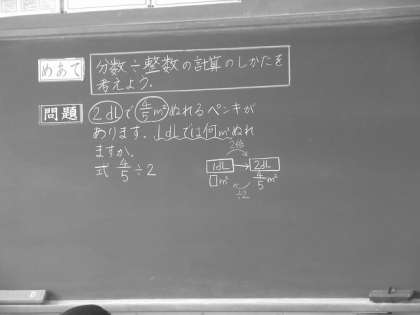 めあて
分数÷整数の計算のしかたを
考えよう。
問題
2dLで4/5m²ぬれるペンキが
あります。1dLでは何m²ぬれ
ますか。
式 4/5÷2
2倍
1dL → 2dL
□m² 4/5m²
÷2